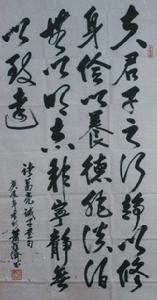 夫君子之行靜以修
身儉以養德非淡泊
無以明志非寧靜無
以致遠
諸葛亮誡子